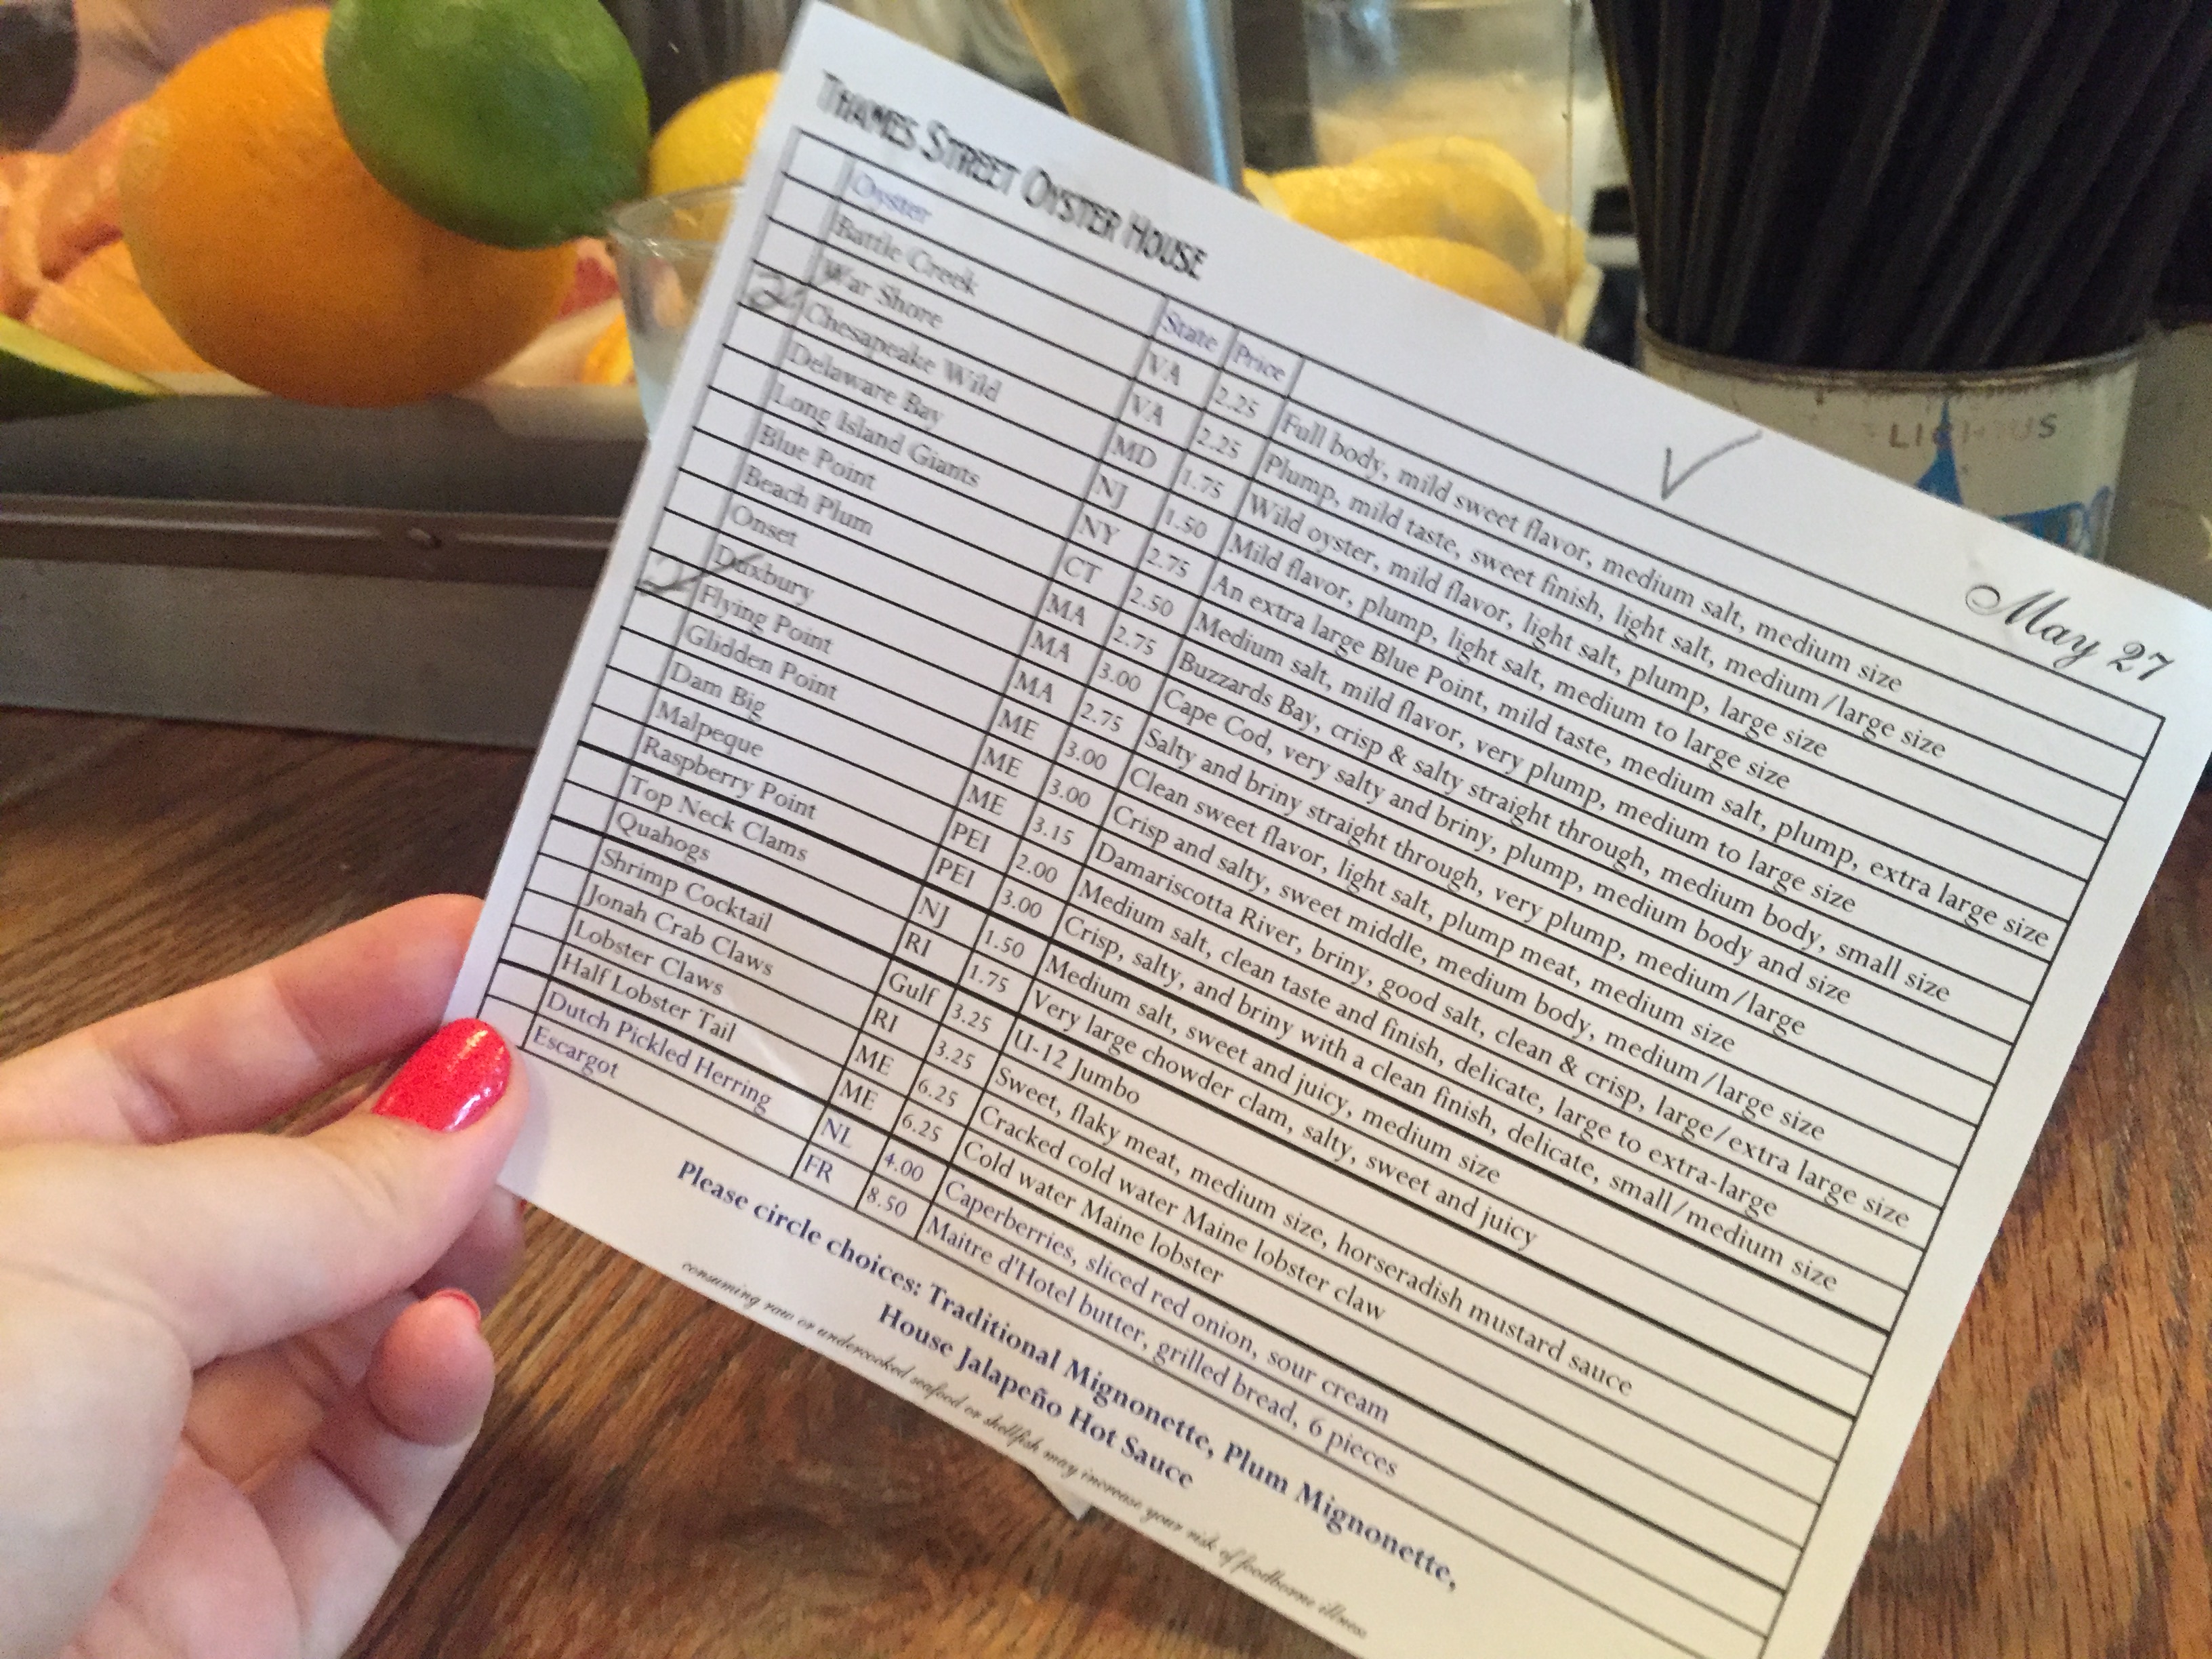 THAMES STREET OYSTER HOUSE
May 27
Oyster State Price
Battle Creek VA 2.25 Full body, mild sweet flavor, medium salt, medium size
War Shore VA 2.25 Plump, mild taste, sweet finish, light salt, medium/large size
2 Chesapeake Wild MD 1.75 Wild oyster, mild flavor, light salt, plump, large size
Delaware Bay NJ 1.50 Mild flavor, plump, light salt, medium to large size
Long Island Giants NY 2.75 An extra large Blue Point, mild taste, medium salt, plump, extra large size
Blue Point CT 2.50 Medium salt, mild flavor, very plump, medium to large size
Beach Plum MA 2.75 Buzzards Bay, crisp & salty straight through, medium body, small size
Onset MA 3.00 Cape Cod, very salty and briny, plump, medium body and size
Duxbury MA 2.75 Salty and briny straight through, very plump, medium/large
2 Flying Point ME 3.00 Clean sweet flavor, light salt, plump meat, medium size
Glidden Point ME 3.00 Crisp and salty, sweet middle, medium body, medium/large size
Dam Big ME 3.15 Damariscotta River, briny, good salt, clean & crisp, large/extra large size
Malpeque PEI 2.00 Medium salt, clean taste and finish, delicate, large to extra-large
Raspberry Point PEI 3.00 Crisp, salty, and briny with a clean finish, delicate, small/medium size
Top Neck Clams NJ 1.50 Medium salt, sweet and juicy, medium size
Quahogs RI 1.75 Very large chowder clam, salty, sweet and juicy
Shrimp Cocktail Gulf 3.25 U-12 Jumbo
Jonah Crab Claws RI 3.25 Sweet, flaky meat, medium size, horseradish mustard sauce
Lobster Claws ME 6.25 Cracked cold water Maine lobster claw
Half Lobster Tail ME 6.25 Cold water Maine lobster
Dutch Pickled Herring NL 4.00 Caperberries, sliced red onion, sour cream
Escargot FR 8.50 Maitre d'Hotel butter, grilled bread, 6 pieces
Please circle choices: Traditional Mignonette, Plum Mignonette,
House Jalapeño Hot Sauce
consuming raw or undercooked seafood or shellfish may increase your risk of foodborne illness